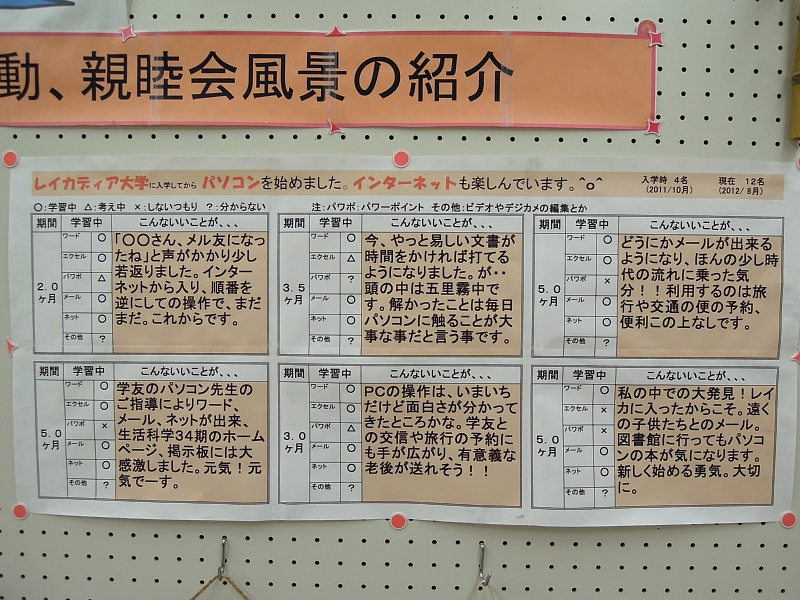 動、親睦会風景の紹介
レイカディア大学に入学してから パソコンを始めました。インターネットも楽しんでいます。^o^
入学時 4名 現在 12名
(2011/10月) (2012/8月)
〇:学習中 △:考え中 ×:しないつもり ?:分からない 注:パワポ:パワーポイント その他:ビデオやデジカメの編集とか
期間 学習中 こんないいことが、、、
2.0ヶ月
ワード 〇
エクセル 〇
パワポ △
メール 〇
ネット 〇
その他 ?
「〇〇さん、メル友になっ
たね」と声がかかり少し
若返りました。インター
ネットから入り、順番を
逆にしての操作で、まだ
まだ。これからです。
期間 学習中 こんないいことが、、、
3.5ヶ月
ワード 〇
エクセル △
パワポ ?
メール 〇
ネット 〇
その他 ?
今、やっと易しい文書が
時間をかければ打てる
ようになりました。が・・
頭の中は五里霧中で
す。解かったことは毎日
パソコンに触ることが大
事な事だと言う事です。
期間 学習中 こんないいことが、、、
5.0ヶ月
ワード 〇
エクセル 〇
パワポ ×
メール 〇
ネット 〇
その他 ?
どうにかメールが出来る
ようになり、ほんの少し時
代の流れに乗った気
分！！利用するのは旅
行や交通の便の予約、
便利この上なしです。
期間 学習中 こんないいことが、、、
5.0ヶ月
ワード 〇
エクセル 〇
パワポ ×
メール 〇
ネット 〇
その他 ?
学友のパソコン先生の
ご指導によりワード、
メール、ネットが出来、
生活科学34期のホーム
ページ、掲示板には大
感激しました。元気！元
気でーす。
期間 学習中 こんないいことが、、、
3.0ヶ月
ワード 〇
エクセル 〇
パワポ △
メール 〇
ネット 〇
その他 ?
PCの操作は、いまいち
だけど面白さが分かって
きたところかな。学友と
の交信や旅行の予約に
も手が広がり、有意義な
老後が送れそう！！
期間 学習中 こんないいことが、、、
5.0ヶ月
ワード 〇
エクセル ×
パワポ ×
メール 〇
ネット 〇
その他 ?
私の中での大発見！レイ
カに入ったからこそ。遠く
の子供たちとのメール。
図書館に行ってもパソコ
ンの本が気になります。
新しく始める勇気。大切
に。